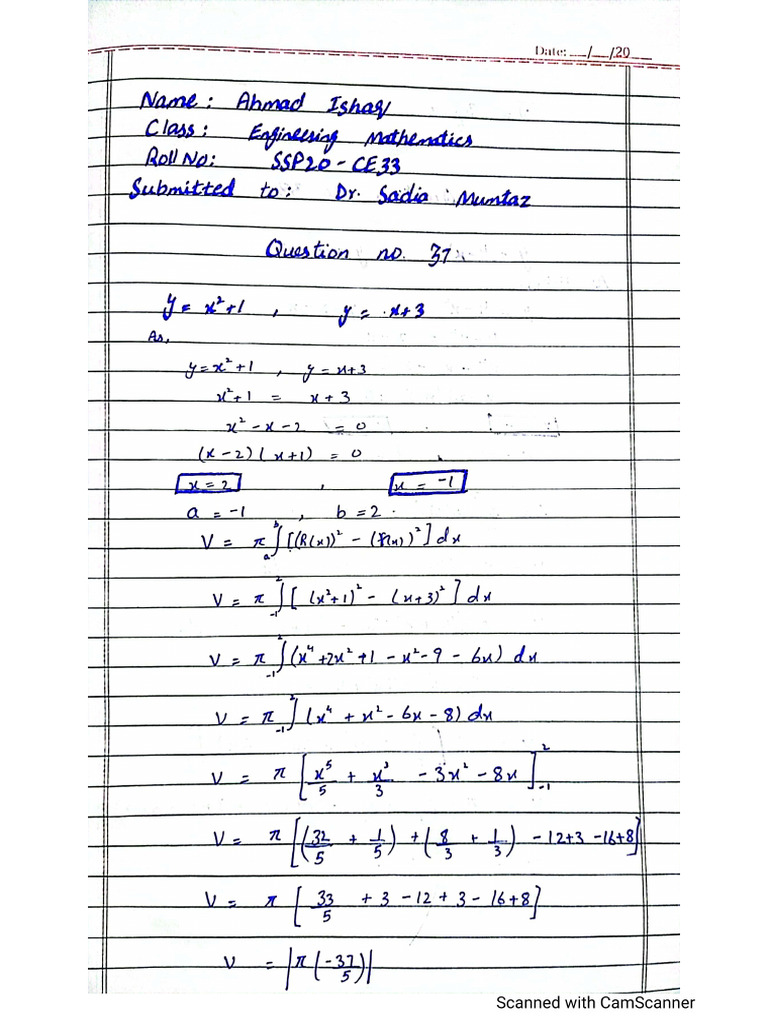 Date: __/__/20__
Name: Ahmad Ishaq
Class: Engineering Mathematics
Roll No: SSP20-CE33
Submitted to: Dr. Sadia Mumtaz
Question no. 37
y = x²+1 , y = x+3
As,
y = x²+1 , y = x+3
x²+1 = x+3
x²-x-2 = 0
(x-2)(x+1) = 0
x = 2 , x = -1
a = -1 , b = 2
V = π ∫ₐᵇ [(R(x))² - (r(x))²] dx
V = π ∫₋₁² [(x²+1)² - (x+3)²] dx
V = π ∫₋₁² (x⁴+2x²+1-x²-9-6x) dx
V = π ∫₋₁² (x⁴+x²-6x-8) dx
V = π [x⁵/5 + x³/3 - 3x² - 8x]₋₁²
V = π [(32/5 + 1/5) + (8/3 + 1/3) - 12+3 -16+8]
V = π [33/5 + 3 - 12 + 3 - 16+8]
V = |π(-37/5)|
Scanned with CamScanner